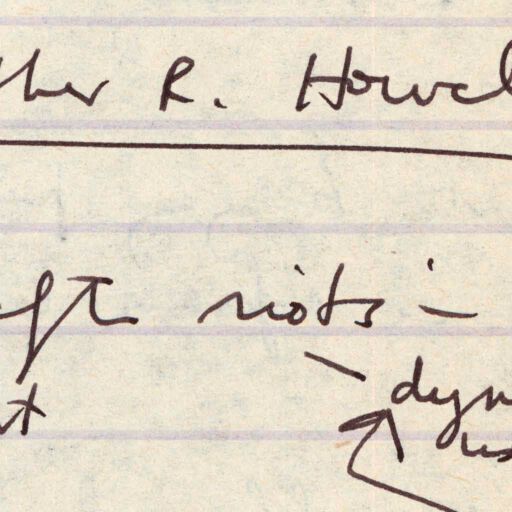 ther R. Howel
aft riots -
- dyn
nt us